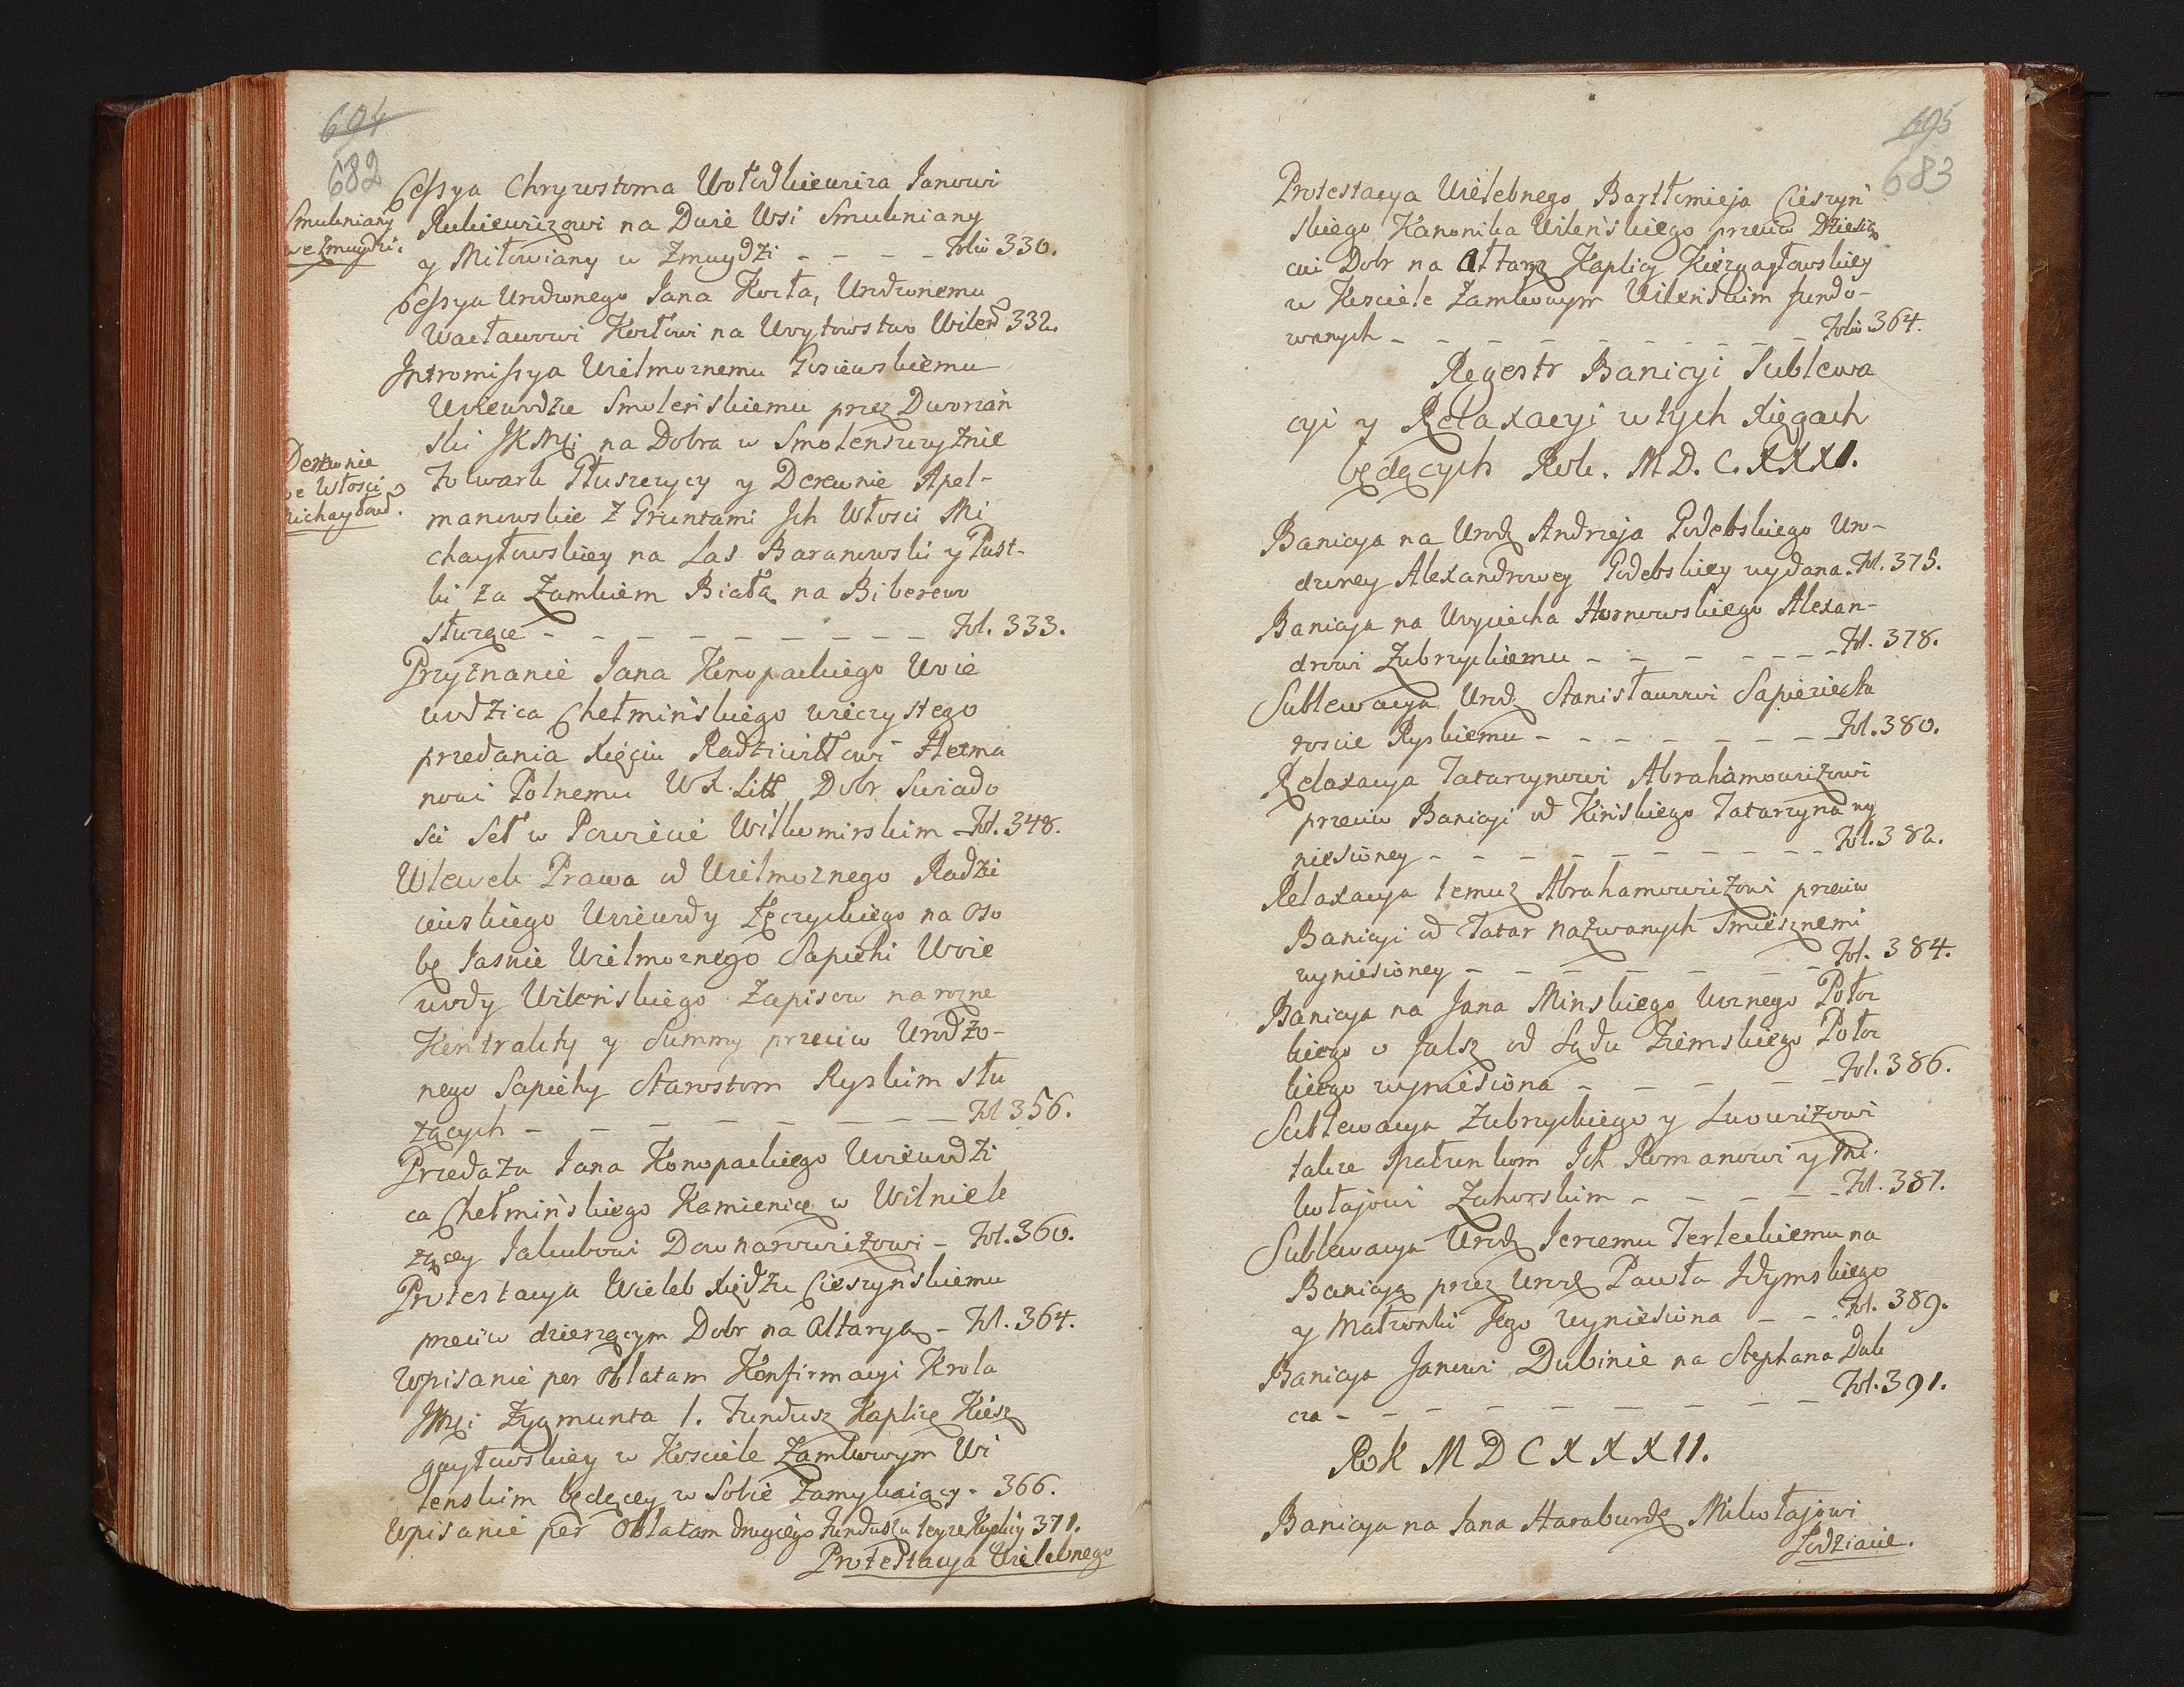 694
682
Cessya Chryzostoma Wołodkiewicza Janowi
Smulniany
we Zmuydzi.
Rukiewiczowi na Dwie Wsi Smulniany
y Miłowiany w Zmuydzi - - - - Folio 330.
Cessya Urodzonego Jana Korła, Urodzonemu
Wacławowi Korłowi na Woytowstwo Wilen 332.
Intromissya Wielmoznemu Gosiewskiemu
Woiewodzie Smolenskiemu przez Dworzan
ski JKMci na Dobra w Smolenszczyznie
Derewnie
we Włosci
Michayłow.
Folwark Głuszczycy y Derewnie Apel-
manowskie z Gruntami Ich Włosci Mi
chayłowskiey na Las Baranowski y Pust-
ki za Zamkiem Białą na Biberewo
słuzące - - - - - - - - Fol. 333.
Przyznanie Jana Konopackiego Woie
wodzica Chełminskiego wieczystego
przedania Xięciu Radziwiłłowi Hetma
nowi Polnemu W X Litt Dobr Swiado
sci Seł w Powiecie Wiłkomirskim - Fol. 348.
Wlewek Prawa od Wielmoznego Radzi
eiowskiego Woiewody Łęczyckiego na Oso
bę Jasnie Wielmoznego Sapiehi Woie
wody Wilenskiego Zapisow na rozne
Kontrakty y Summy przeciw Urodzo-
nego Sapiehy Starostom Ryskim słu
zących - - - - - - - - Fol 356.
Przedaza Jana Konopackiego Woiewodzi
ca Chełminskiego Kamienicę w Wilnie le
zącey Jakubowi Downarowiczowi - Fol. 360.
Protestacya Wieleb Xiędzu Cieszynskiemu
przeciw dzierzącym Dobr na Altaryą - Fol. 364.
Wpisanie per Oblatam Konfirmacyi Krola
JMci Zygmunta 1. Fundusz Kaplicę Kiesz
gayłowskiey w Kosciele Zamkowym Wi
lenskim będącey w Sobie Zamykaiący - 366.
Wpisanie per Oblatam drugiego Funduszu teyze Kaplicy 371.
Protestacya Wielebnego
695
683
Protestacya Wielebnego Bartłomieja Cieszyn
skiego Kanonika Wilenskiego przeciw Dzierz
cui Dobr na Ałtarz Kaplicy Kiezgayłowskiey
w Kosciele Zamkowym Wilenskim fundo-
wanych - - - - - - - - - Folio 364.
Regestr Banicyi Sublewa
cyi y Relaxacyi w tych Xięgach
będących Rok. M D. C. XXXI.
Banicya na Urodz Andrzeja Godebskiego Uro-
dzoney Alexandrowey Godebskiey wydana. Fol. 375.
Banicya na Woyciecha Hornowskiego Alexan-
drowi Zubrzyckiemu - - - - - - Fol. 378.
Sublewacya Urodz Stanisławowi Sapiezie Sta
roscie Ryskiemu - - - - - - - Fol. 380.
Relaxacya Tatarzynowi Abrahimowiczowi
przeciw Banicyi od Kinskiego Tatarzyna wy
niesioney - - - - - - - - - Fol. 382.
Relaxacya temuz Abrahamowiczowi przeciw
Banicyi od Tatar nazwanych Smiesznemi
wyniesioney - - - - - - - Fol. 384.
Banicya na Jana Minskiego Woznego Połoc
kiego o Falsz od Sądu Ziemskiego Połoc
kiego wyniesiona - - - - - Fol. 386.
Sublewacya Zubrzyckiego y Lwowiczowi
takze Małzonkom Ich Romanowi y Mi-
kołajowi Zahorskim - - - - - Fol. 387.
Sublewacya Urodz Jerzemu Terleckiemu na
Banicyą przez Urodz Pawła Idymskiego
y Małzonki Jego wyniesiona - - Fol. 389.
Banicya Janowi Dubinie na Stephana Dub
cza - - - - - - - - - - Fol. 391.
Rok M D C X X X I I.
Banicya na Jana Haraburdę Mikołajowi
Łodziacie.